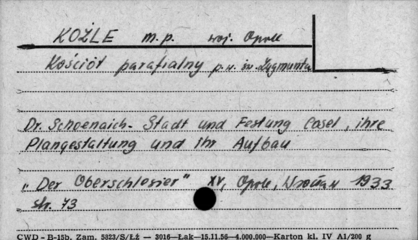 KOŹLE m.p. woj. Opole
Kościół parafialny p.w. św. Zygmunta
Dr. Schoenaich - Stadt und Festung Cosel, ihre
Plangestaltung und ihr Aufbau
"Der Oberschlesier" XV, Opole, Wrocław 1933
str. 73
CWD - B-15b. Zam. 5323/S/Łź — 3016—Łak—15.11.56—4.000.000—Karton kl. IV A1/200 g